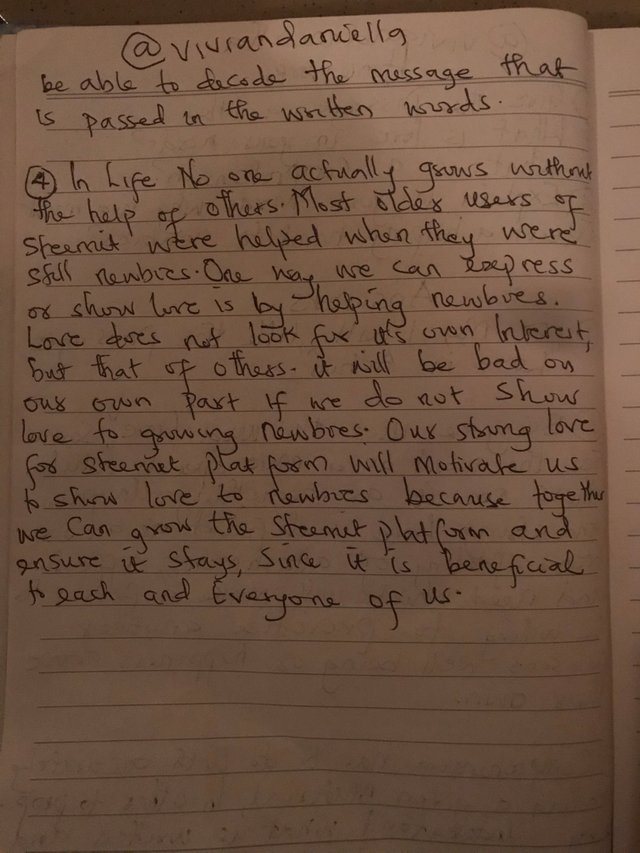 @viviandaniella
be able to decode the message that
is passed in the written words.
④ In Life No one actually grows without
the help of others. Most older users of
Steemit were helped when they were
still newbies. One way we can express
or show love is by helping newbies.
Love does not look for it's own Interest,
but that of others. it will be bad on
our own part If we do not show
love to growing newbies. Our strong love
for steemit platform will motivate us
to show love to newbies because together
we can grow the steemit platform and
ensure it stays, Since it is beneficial
to each and Everyone of us.